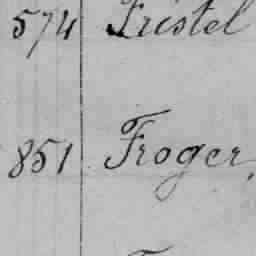 574 Fristel
851 Froger,